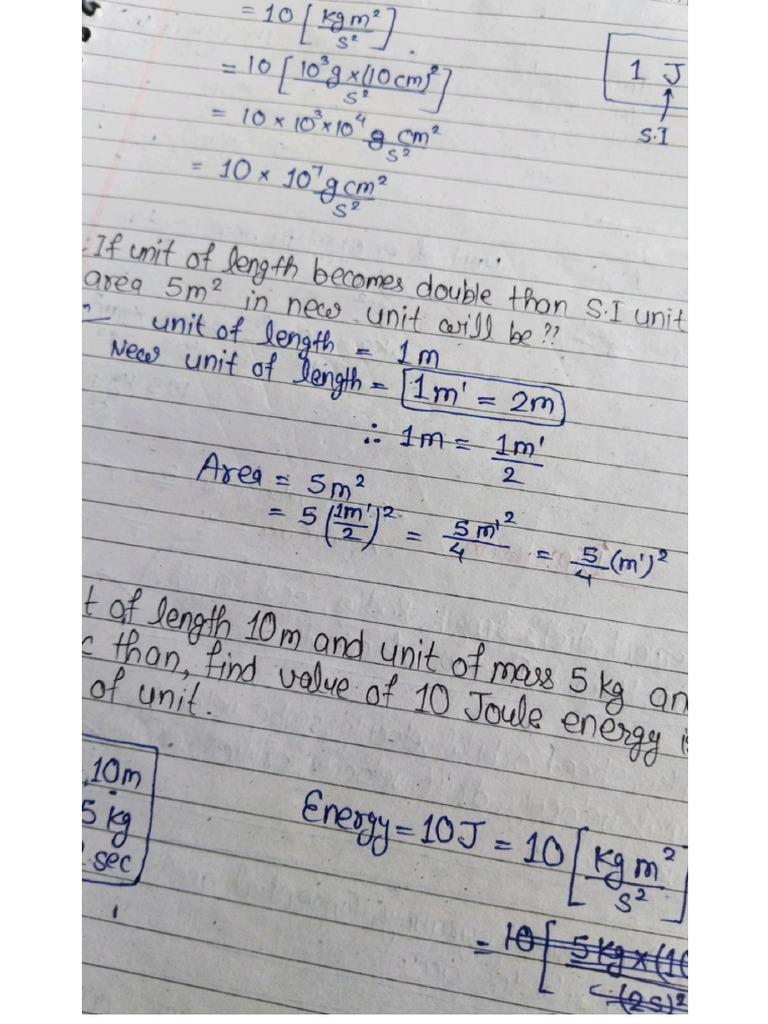 = 10 [kg m²/s²].
= 10 [10³g × (10 cm)²/s²]
= 10 × 10³ × 10⁴ g cm²/s²
= 10 × 10⁷ g cm²/s²
1 J
S.I
: If unit of length becomes double than S.I unit
area 5m² in new unit will be ??
unit of length = 1m
New unit of length = 1m' = 2m
∴ 1m = 1m'/2
Area = 5m²
= 5 (1m'/2)² = 5m'²/4 = 5/4 (m')²
t of length 10m and unit of mass 5 kg an
c than, find value of 10 Joule energy i
of unit.
10m
5 kg
sec
Energy = 10J = 10 [kg m²/s²]
= 10 [5kg × (10/(2s)²